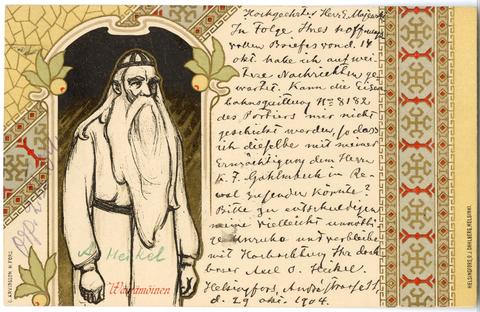 Hochgeehrter Herr E.
In Folge Ihres hoffnungs
vollen Briefes vom d. 14
okt. habe ich auf wei-
tere Nachrichten ge
wartet. Kann die Eisen
bahnquittung No 3182
des Portiers mir nicht
geschickt werden, so dass
ich dieselbe mit meiner
Ermächtigung dem Herrn
in Re-
val zusenden könnte?
Bitte zu entschuldigen
meine vielleicht unnöthi
ge Unruhe und verbleibe
mit Hochachtung Ihr dank
barer Axel O. Heikel.
Helsingfors,
d. 29 okt. 1904.
A. Heikel
Wäinämöinen
G. ARVIDSSON
HELSINGFORS, O. J. DAHLBERG, HELSINKI.